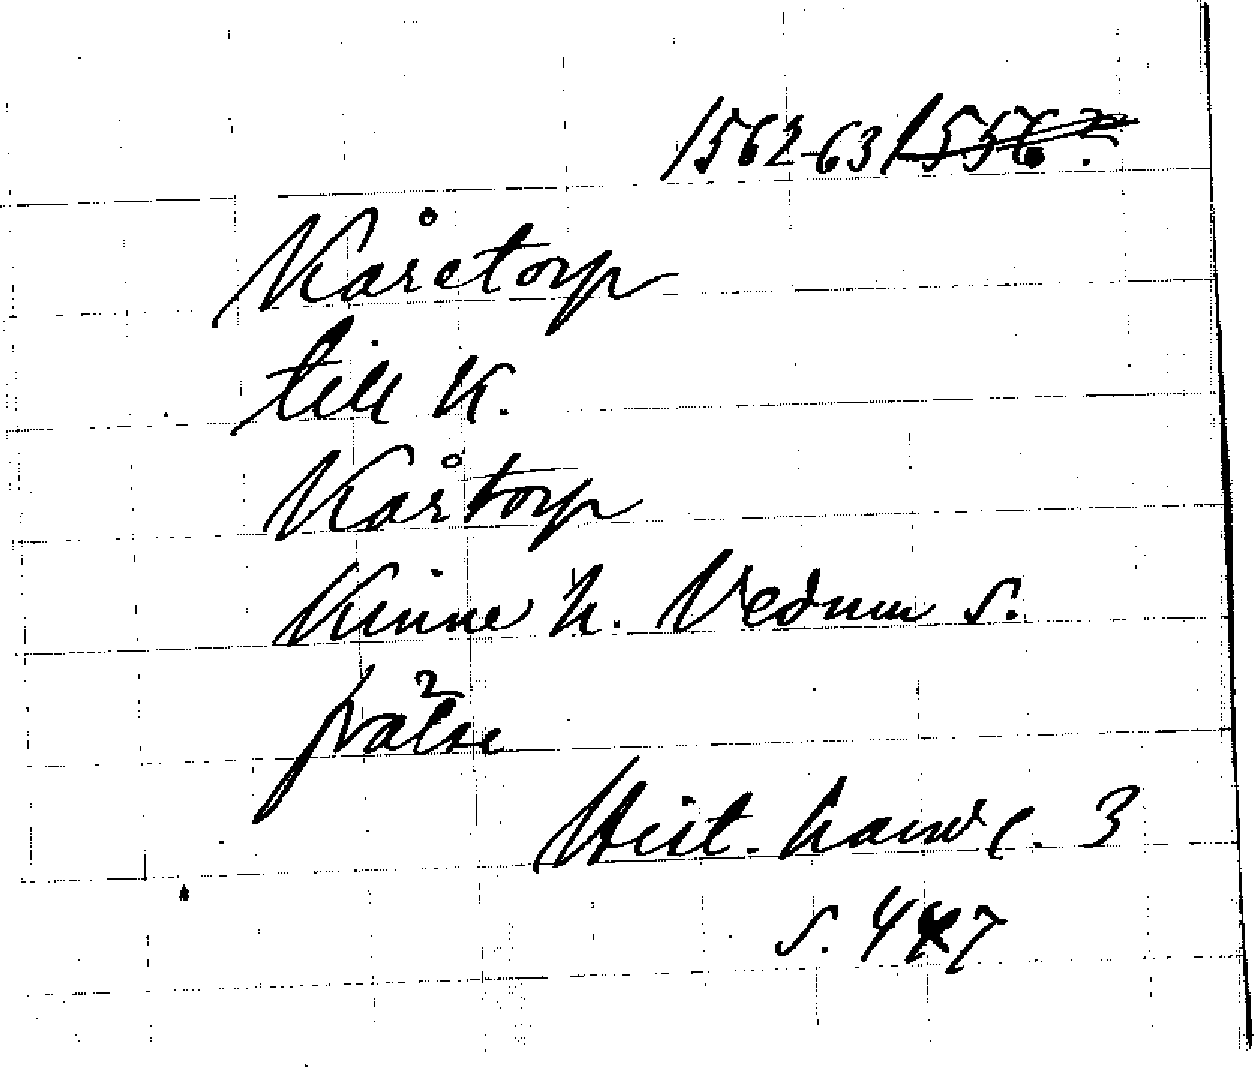 1562-63 1556?
Kåretorp
till K.
Kårtorp
Kinne h. Vedum s.
frälse
Hist. handl. 3
s. 447